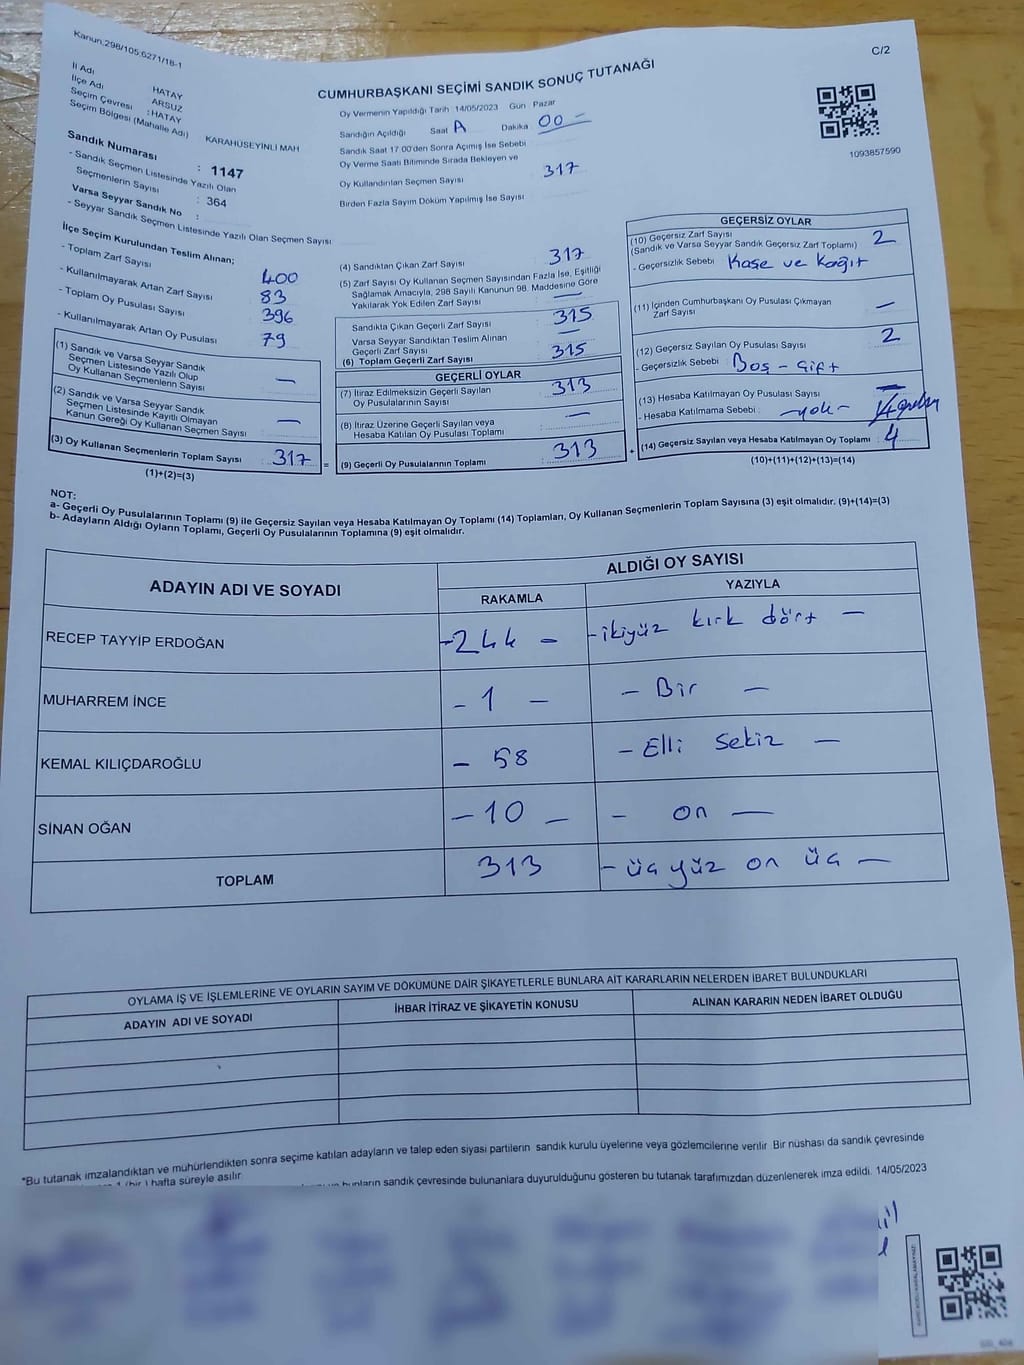 Kanun:298/105;6271/18-1
C/2
CUMHURBAŞKANI SEÇİMİ SANDIK SONUÇ TUTANAĞI
İl Adı HATAY
İlçe Adı ARSUZ
Seçim Çevresi : HATAY
Seçim Bölgesi (Mahalle Adı) KARAHÜSEYİNLİ MAH
Sandık Numarası : 1147
- Sandık Seçmen Listesinde Yazılı Olan
Seçmenlerin Sayısı : 364
Varsa Seyyar Sandık No :
- Seyyar Sandık Seçmen Listesinde Yazılı Olan Seçmen Sayısı
Oy Vermenin Yapıldığı Tarih 14/05/2023 Gün Pazar
Sandığın Açıldığı Saat Dakika 00 -
Sandık Saat 17.00'den Sonra Açımış İse Sebebi
Oy Verme Saati Bitiminde Sırada Bekleyen ve
Oy Kullandırılan Seçmen Sayısı 317
Birden Fazla Sayım Döküm Yapılmış İse Sayısı
1093857590
İlçe Seçim Kurulundan Teslim Alınan;
- Toplam Zarf Sayısı 400
- Kullanılmayarak Artan Zarf Sayısı 83
- Toplam Oy Pusulası Sayısı 396
- Kullanılmayarak Artan Oy Pusulası 79
(1) Sandık ve Varsa Seyyar Sandık
Seçmen Listesinde Yazılı Olup
Oy Kullanan Seçmenlerin Sayısı —
(2) Sandık ve Varsa Seyyar Sandık
Seçmen Listesinde Kayıtlı Olmayan
Kanun Gereği Oy Kullanan Seçmen Sayısı —
(3) Oy Kullanan Seçmenlerin Toplam Sayısı 317
(1)+(2)=(3)
(4) Sandıktan Çıkan Zarf Sayısı 317
(5) Zarf Sayısı Oy Kullanan Seçmen Sayısından Fazla İse, Eşitliği
Sağlamak Amacıyla, 298 Sayılı Kanunun 98. Maddesine Göre
Yakılarak Yok Edilen Zarf Sayısı —
Sandıkta Çıkan Geçerli Zarf Sayısı 315
Varsa Seyyar Sandıktan Teslim Alınan
Geçerli Zarf Sayısı —
(6) Toplam Geçerli Zarf Sayısı 315
GEÇERLİ OYLAR
(7) İtiraz Edilmeksizin Geçerli Sayılan
Oy Pusulalarının Sayısı 313
(8) İtiraz Üzerine Geçerli Sayılan veya
Hesaba Katılan Oy Pusulası Toplamı —
= (9) Geçerli Oy Pusulalarının Toplamı 313
GEÇERSİZ OYLAR
(10) Geçersiz Zarf Sayısı
(Sandık ve Varsa Seyyar Sandık Geçersiz Zarf Toplamı) 2
- Geçersizlik Sebebi Kaşe ve Kağıt
(11) İçinden Cumhurbaşkanı Oy Pusulası Çıkmayan
Zarf Sayısı —
(12) Geçersiz Sayılan Oy Pusulası Sayısı 2
- Geçersizlik Sebebi : Boş - Çift
(13) Hesaba Katılmayan Oy Pusulası Sayısı —
- Hesaba Katılmama Sebebi : -yok-
+ (14) Geçersiz Sayılan veya Hesaba Katılmayan Oy Toplamı : 4
(10)+(11)+(12)+(13)=(14)
NOT:
a- Geçerli Oy Pusulalarının Toplamı (9) ile Geçersiz Sayılan veya Hesaba Katılmayan Oy Toplamı (14) Toplamları, Oy Kullanan Seçmenlerin Toplam Sayısına (3) eşit olmalıdır. (9)+(14)=(3)
b- Adayların Aldığı Oyların Toplamı, Geçerli Oy Pusulalarının Toplamına (9) eşit olmalıdır.
ADAYIN ADI VE SOYADI
ALDIĞI OY SAYISI
RAKAMLA YAZIYLA
RECEP TAYYİP ERDOĞAN -244 - -ikiyüz kırk dört -
MUHARREM İNCE - 1 - - Bir -
KEMAL KILIÇDAROĞLU - 58 - Elli Sekiz -
SİNAN OĞAN - 10 - - on -
TOPLAM 313 - üç yüz on üç -
OYLAMA İŞ VE İŞLEMLERİNE VE OYLARIN SAYIM VE DÖKÜMÜNE DAİR ŞİKAYETLERLE BUNLARA AİT KARARLARIN NELERDEN İBARET BULUNDUKLARI
ADAYIN ADI VE SOYADI İHBAR İTİRAZ VE ŞİKAYETİN KONUSU ALINAN KARARIN NEDEN İBARET OLDUĞU
*Bu tutanak imzalandıktan ve mühürlendikten sonra seçime katılan adayların ve talep eden siyasi partilerin sandık kurulu üyelerine veya gözlemcilerine verilir Bir nüshası da sandık çevresinde
1 (bir) hafta süreyle asılır
bunların sandık çevresinde bulunanlara duyurulduğunu gösteren bu tutanak tarafımızdan düzenlenerek imza edildi. 14/05/2023